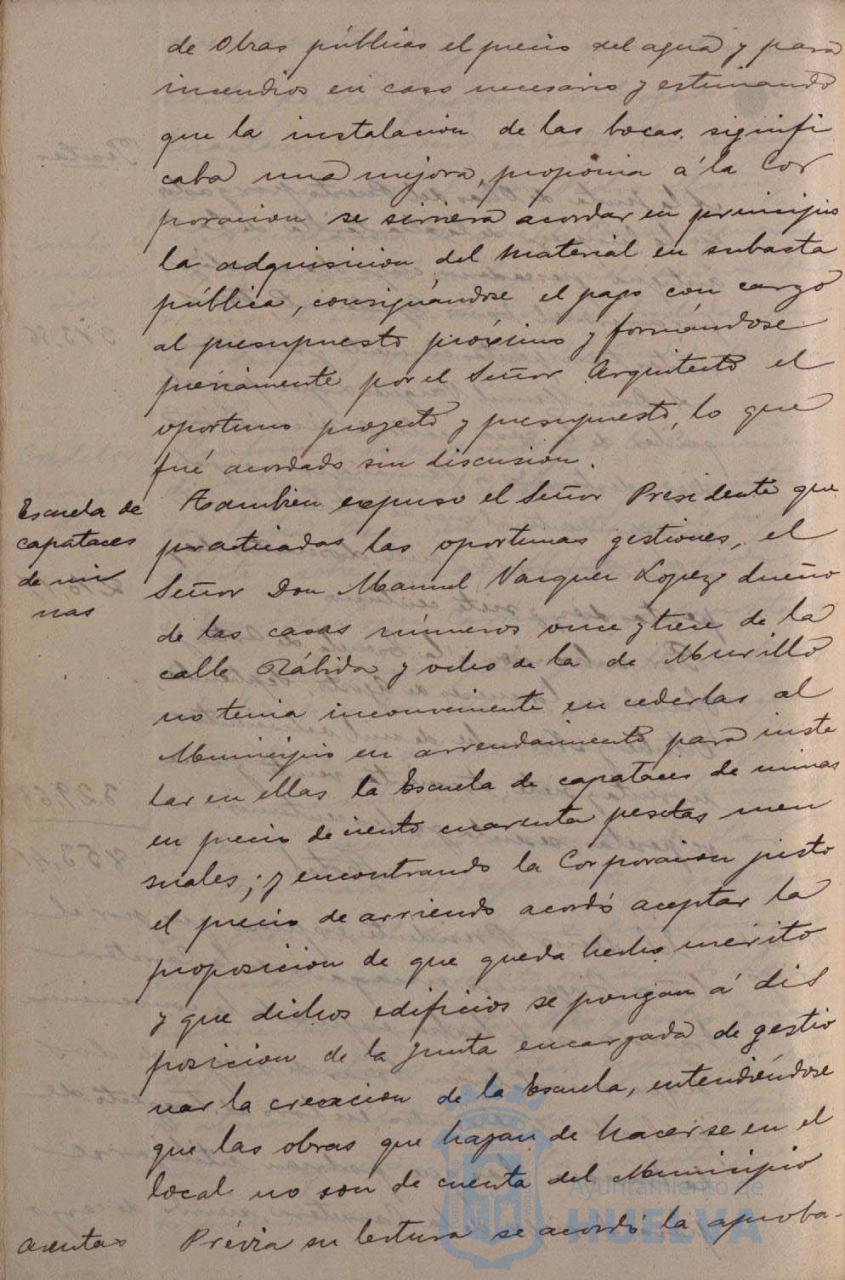 de Obras públicas el precio del agua y para
incendios en caso necesario y estimando
que la instalacion de las bocas signifi
caba una mejora, proponia á la Cor
poracion se sirviera acordar en principio
la adquisicion del material en subasta
pública, consignándose el pago con cargo
al presupuesto próximo y formándose
préviamente por el Señor Arquitecto el
oportuno proyecto y presupuesto, lo que
fué acordado sin discusion.
Escuela de
capataces
de mi
nas
Tambien expuso el Señor Presidente que
practicadas las oportunas gestiones, el
Señor Don Manuel Vazquez Lopez dueño
de las casas números once y trece de la
calle Rábida y ocho de la de Murillo
no tenia inconveniente en cederlas al
Municipio en arrendamiento para insta
lar en ellas la Escuela de capataces de minas
en precio de ciento cuarenta pesetas men
suales; y encontrando la Corporacion justo
el precio de arriendo acordó aceptar la
proposicion de que queda hecho mérito
y que dichos edificios se pongan á dis
posicion de la Junta encargada de gestio
nar la creacion de la Escuela, entendiéndose
que las obras que hayan de hacerse en el
local no son de cuenta del Municipio
Cuentas
Prévia su lectura se acordó la aproba-
Ayuntamiento de
HUELVA